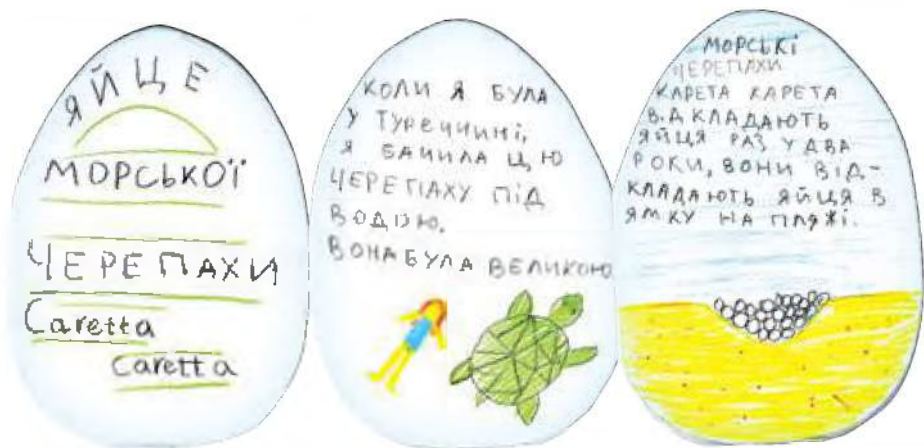 ЯЙЦЕ
МОРСЬКОЇ
ЧЕРЕПАХИ
Caretta
Caretta
КОЛИ Я БУЛА
У ТУРЕЧЧИНІ,
Я БАЧИЛА ЦЮ
ЧЕРЕПАХУ ПІД
ВОДОЮ.
ВОНА БУЛА ВЕЛИКОЮ
МОРСЬКІ
ЧЕРЕПАХИ
КАРЕТА КАРЕТА
ВІДКЛАДАЮТЬ
ЯЙЦЯ РАЗ У ДВА
РОКИ, ВОНИ ВІД-
КЛАДАЮТЬ ЯЙЦЯ В
ЯМКУ НА ПЛЯЖІ.